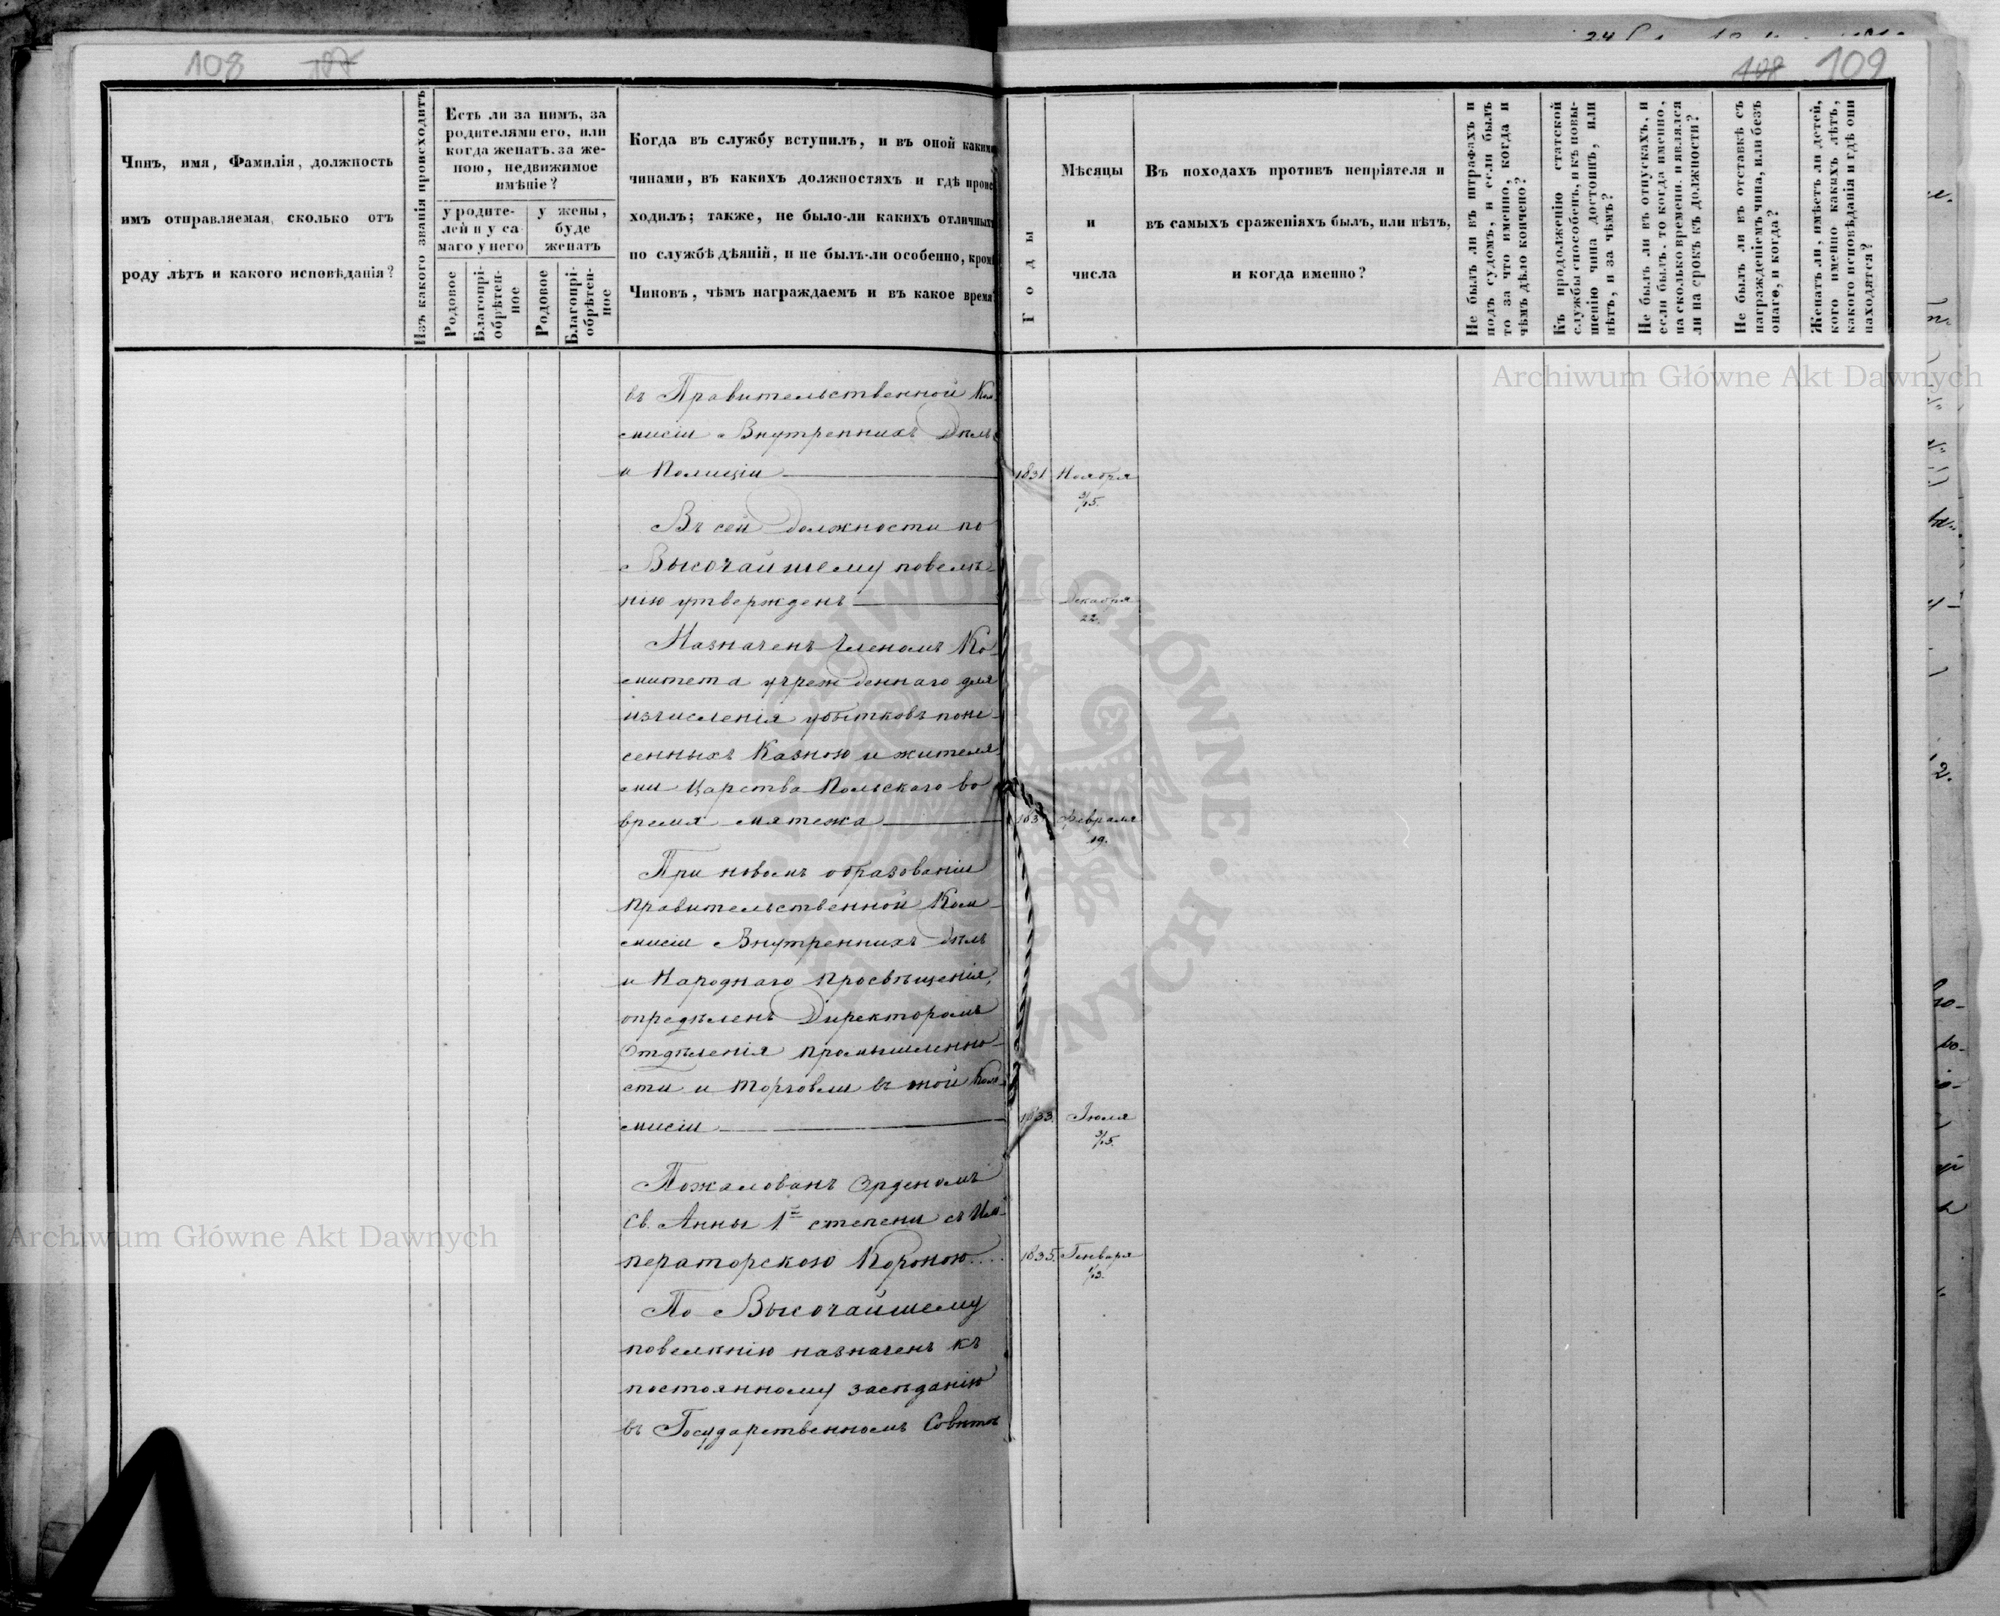 108 107
108 109
Чинъ, имя, Фамилія, должность
имъ отправляемая, сколько отъ
роду лѣтъ и какого исповѣданія?
Изъ какого званія происходитъ
Есть ли за нимъ, за
родителями его, или
когда женатъ, за же-
ною, недвижимое
имѣніе?
у родите-
лей и у са-
маго у него
у жены,
буде
женатъ
Родовое
Благопрі-
обрѣтен-
ное
Родовое
Благопрі-
обрѣтен-
ное
Когда въ службу вступилъ, и въ оной какими
чинами, въ какихъ должностяхъ и гдѣ проис
ходилъ; также, не было-ли какихъ отличныхъ
по службѣ дѣяній, и не былъ-ли особенно, кромѣ
Чиновъ, чѣмъ награждаемъ и въ какое время?
Годы
Мѣсяцы
и
числа
Въ походахъ противъ непріятеля и
въ самыхъ сраженіяхъ былъ, или нѣтъ,
и когда именно?
Не былъ ли въ штрафахъ и
подъ судомъ, и если былъ
то за что именно, когда и
чѣмъ дѣло кончено?
Къ продолженію статской
службы способенъ, и къ повы-
шенію чина достоинъ, или
нѣтъ, и за чѣмъ?
Не былъ ли въ отпускахъ, и
если былъ, то когда именно,
на сколько времени, и являлся
ли на срокъ къ должности?
Не былъ ли въ отставкѣ съ
награжденіемъ чина, или безъ
онаго, и когда?
Женатъ ли, имѣетъ ли дѣтей,
кого именно какихъ лѣтъ,
какого исповѣданія и гдѣ они
находятся?
въ Правительственной Ком
мисіи Внутреннихъ Дѣлъ
и Полиціи 1831 Ноября
3/15.
Въ сей должности по
Высочайшему повелѣ-
нію утвержденъ Декабря
22.
Назначенъ Членомъ Ко-
митета учрежденнаго для
изчисленія убытковъ поне-
сенныхъ Казною и жителя-
ми Царства Польскаго во
время мятежа 183 Февраля
19.
При новомъ образованіи
Правительственной Ком-
мисіи Внутреннихъ Дѣлъ
и Народнаго Просвѣщенія,
опредѣленъ Директоромъ
Отдѣленія Промышленно-
сти и Торговли въ оной Ком-
мисіи 1833. Іюля
3/15.
Пожалованъ Орденомъ
Св. Анны 1й степени съ Им-
ператорскою Короною.... 1835. Генваря
1/13.
По Высочайшему
повелѣнію назначенъ къ
постоянному засѣданію
въ Государственномъ Совѣтѣ
Archiwum Główne Akt Dawnych
Archiwum Główne Akt Dawnych